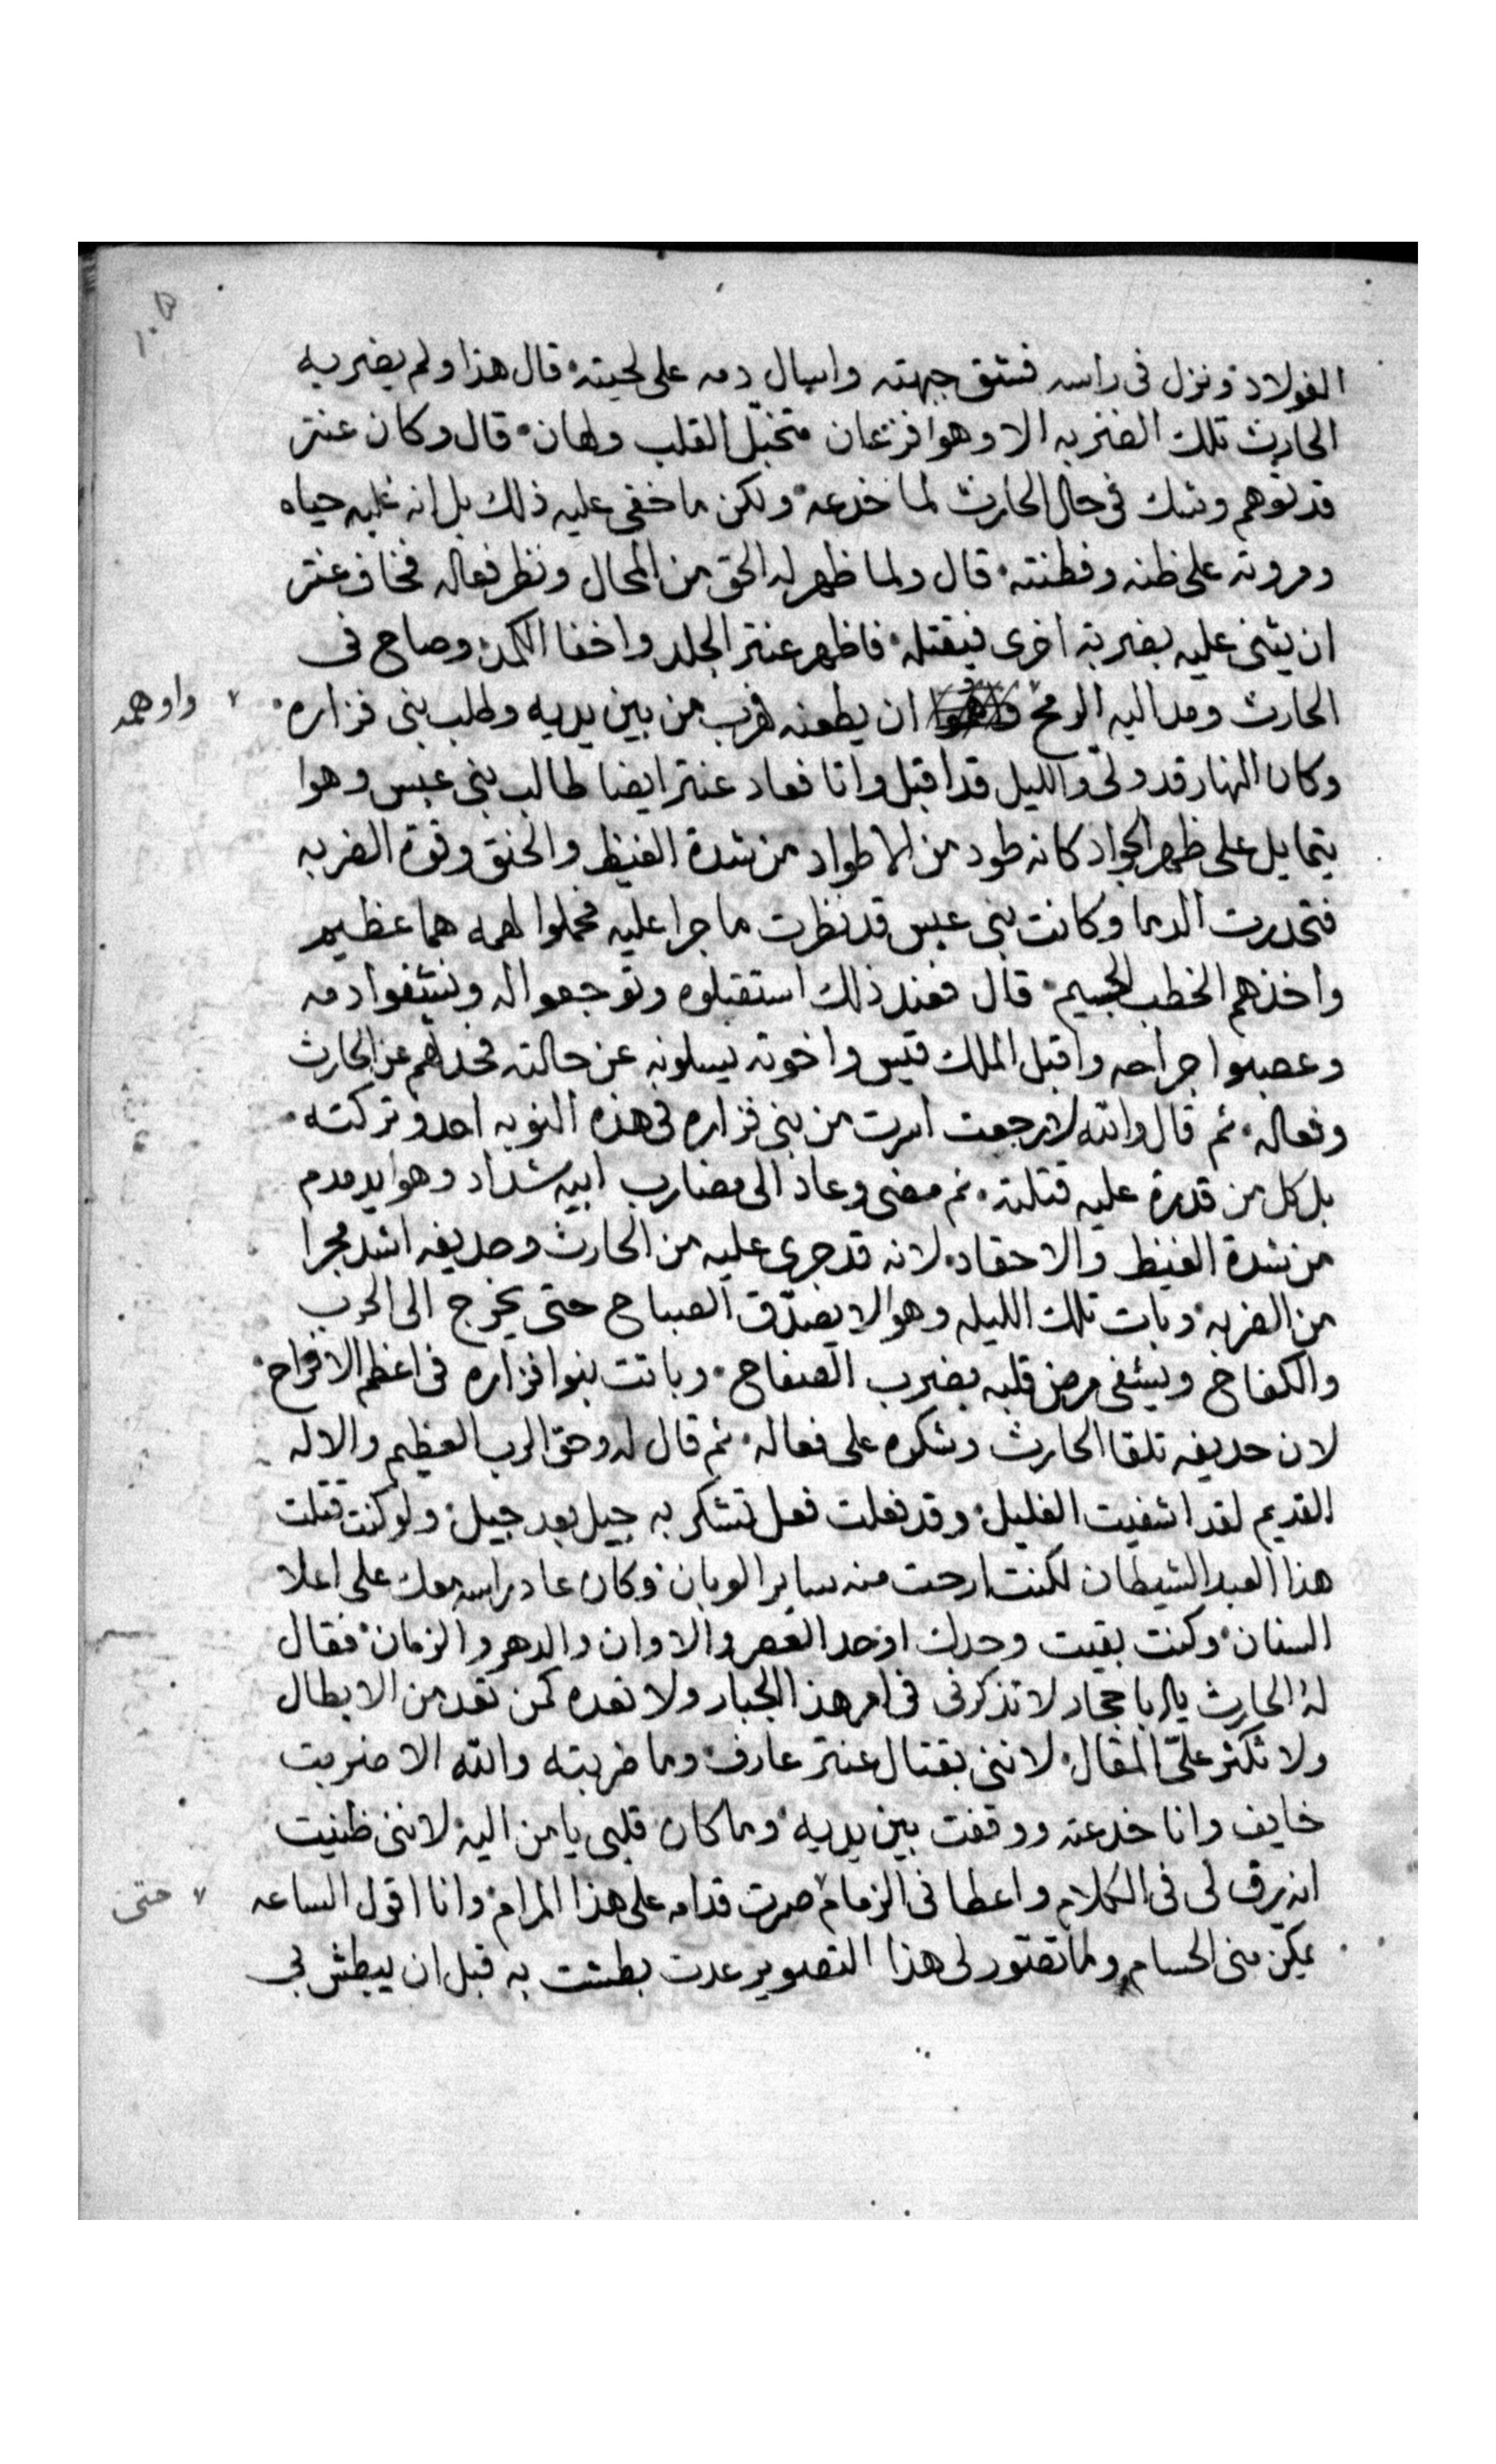 الفولاد ونزل فى راسه فشق جبهته واسال دمه على لحيته قال هذا ولم يضربه
الحارث تلك الضربه الا وهوا فزعان متخبّل القلب ولهان قال وكان عنتر
قد توهم وشك فى حال الحارث لما خدعه ولكن ما خفى عليه ذلك بل انه غلبه حياه
ومروته على ظنه وفطنته قال ولما ظهر له الحق من المحال ونظر فعاله فخاف عنتر
ان يثنى عليه بضربة اخرى فيقتله فاظهر عنتر الجلد واخفا الكمد وصاح فى
الحارث ومد اليه الرمح ان يطعنه فهرب من بين يديه وطلب بنى فزاره
واوهمه
وكان النهار قد ولىّ والليل قد اقبل واتا فعاد عنتر ايضا طالب بنى عبس وهوا
يتمايل على ظهر الجواد كانه طود من الاطواد من شدة الغيظ والحنق وقوة الضربه
فتحدرت الدما وكانت بنى عبس قد نظرت ما جرا عليه فحملوا لهمه هما عظيم
واخذهم الخطب الجسيم قال فعند ذلك استقبلوه وتوجعوا له ونشفوا دمه
وعصبوا جراحه واقبل الملك قيس واخوته يسلونه عن حالته فحدثهم عن الحارث
وفعاله ثم قال والله لا رجعت اسرت من بنى فزاره فى هذه النوبه احد وتركته
بل كل من قدرة عليه قتلته ثم مضى وعاد الى مضارب ابيه شداد وهوا يدمدم
من شدة الغيظ والاحقاد لانه قد جرى عليه من الحارث وحديفه اشد مجرا
من الضربه وبات تلك الليله وهوا لا يصدّق الصباح حتى يخرج الى الحرب
والكفاح ويشفى مرض قلبه بضرب الصفاح وباتت بنوا فزاره فى اعظم الافراح
لان حديفه تلقا الحارث وشكره على فعاله ثم قال له وحق الرب العظيم والاله
القديم لقد اشفيت الغليل وقد فعلت فعل تشكر به جيل بعد جيل ولو كنت قتلت
هذا العبد الشيطان لكنت ارحت منه ساير العربان وكان عاد راسه معك على اعلا
السنان وكنت بقيت وحدك اوحد العصر والاوان والدهر والزمان فقال
له الحارث يا با حجار لا تذكرنى فى امر هذا الجبار ولا تعده كمن تعد من الابطال
ولا تكثر علىّ المقال لاننى بقتال عنتر عارف وما ضربته والله الا ضربت
خايف وانا خدعته ووقفت بين يديه وما كان قلبى يامن اليه لاننى ظنيت
انه يرق لى فى الكلام واعطانى الزمام صرت قدامه على هذا المرام وانا اقول الساعه
حتى
يمكن منى الحسام ولما تصوّر لى هذا التصوير عدت بطشت به قبل ان يبطش بى